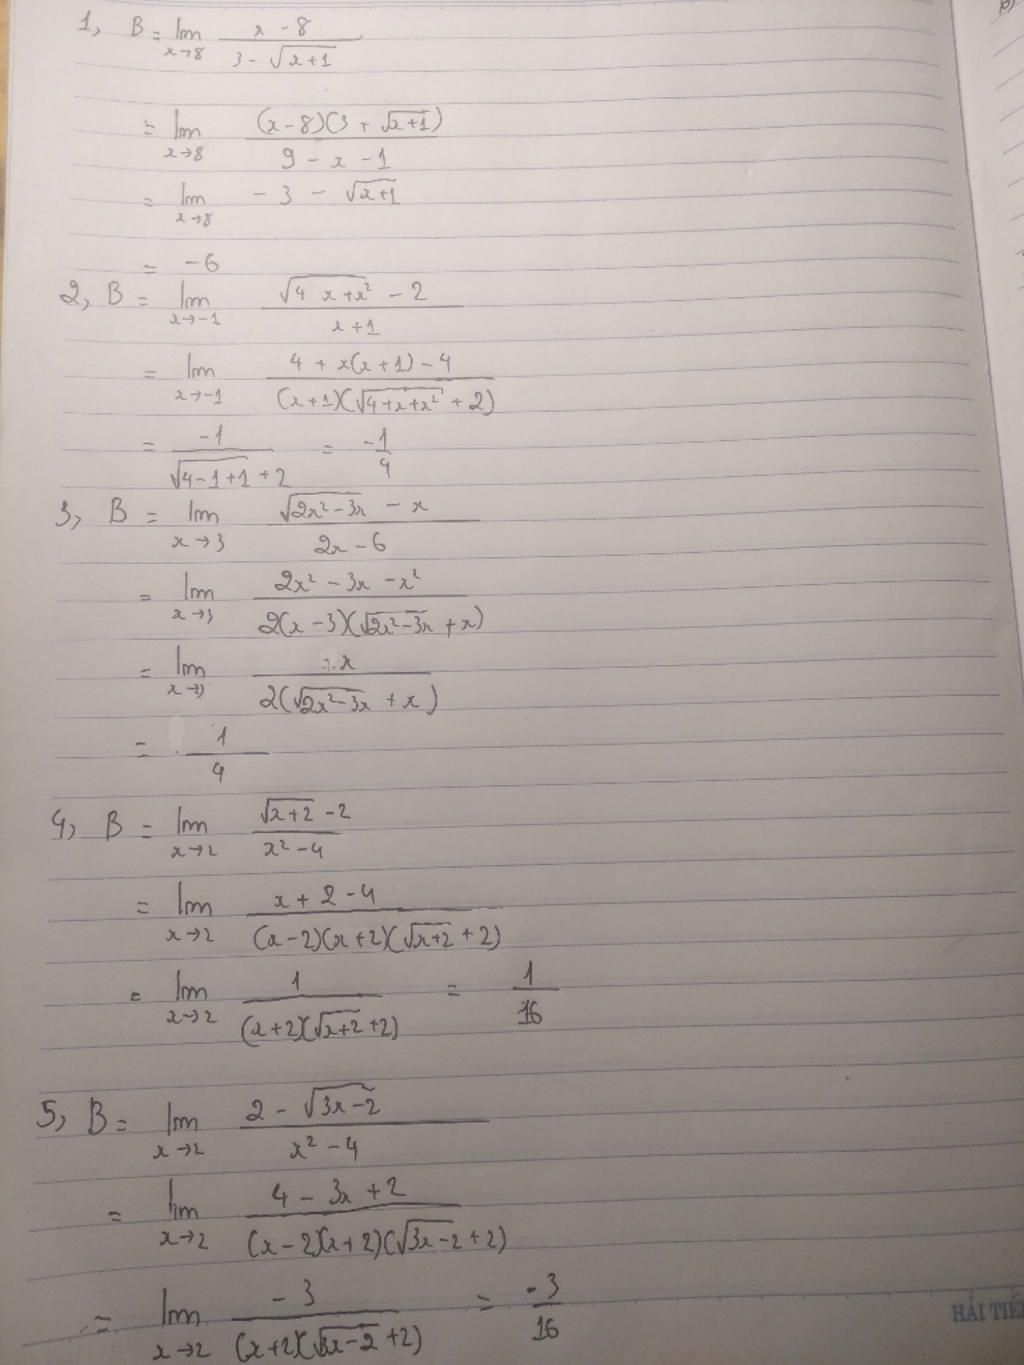 1, B = lim x→8 (x - 8)/(3 - √(x+1))
= lim x→8 ((x-8)(3 + √(x+1)))/(9 - x - 1)
= lim x→8 -3 - √(x+1)
= -6
2, B = lim x→-1 (√(4 x+x²) - 2)/(x+1)
= lim x→-1 (4 + x(x+1) - 4)/((x+1)(√(4+x+x²) + 2))
= -1/(√(4-1+1) + 2) = -1/4
3, B = lim x→3 (√(2x²-3x) - x)/(2x-6)
= lim x→3 (2x² - 3x - x²)/(2(x-3)(√(2x²-3x) + x))
= lim x→3 x/(2(√(2x²-3x) + x))
= 1/4
4, B = lim x→2 (√(x+2) - 2)/(x² - 4)
= lim x→2 (x + 2 - 4)/((x-2)(x+2)(√(x+2) + 2))
= lim x→2 1/((x+2)(√(x+2) + 2)) = 1/16
5, B = lim x→2 (2 - √(3x-2))/(x² - 4)
= lim x→2 (4 - 3x + 2)/((x-2)(x+2)(√(3x-2) + 2))
= lim x→2 -3/((x+2)(√(3x-2) + 2)) = -3/16